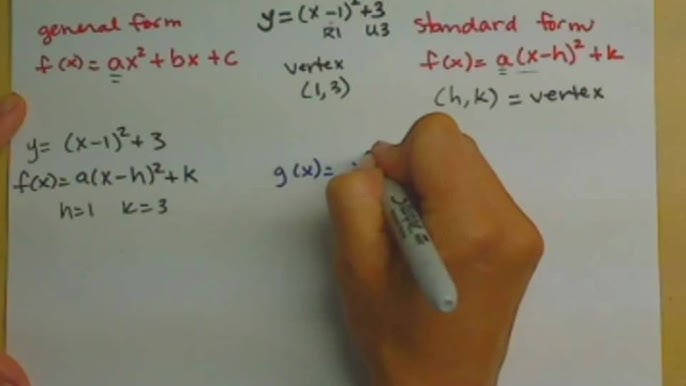 general form
f(x) = ax² + bx + c
y = (x-1)² + 3
R1 U3
vertex
(1,3)
standard form
f(x) = a(x-h)² + k
(h,k) = vertex
y = (x-1)² + 3
f(x) = a(x-h)² + k
h=1 k=3
g(x) =